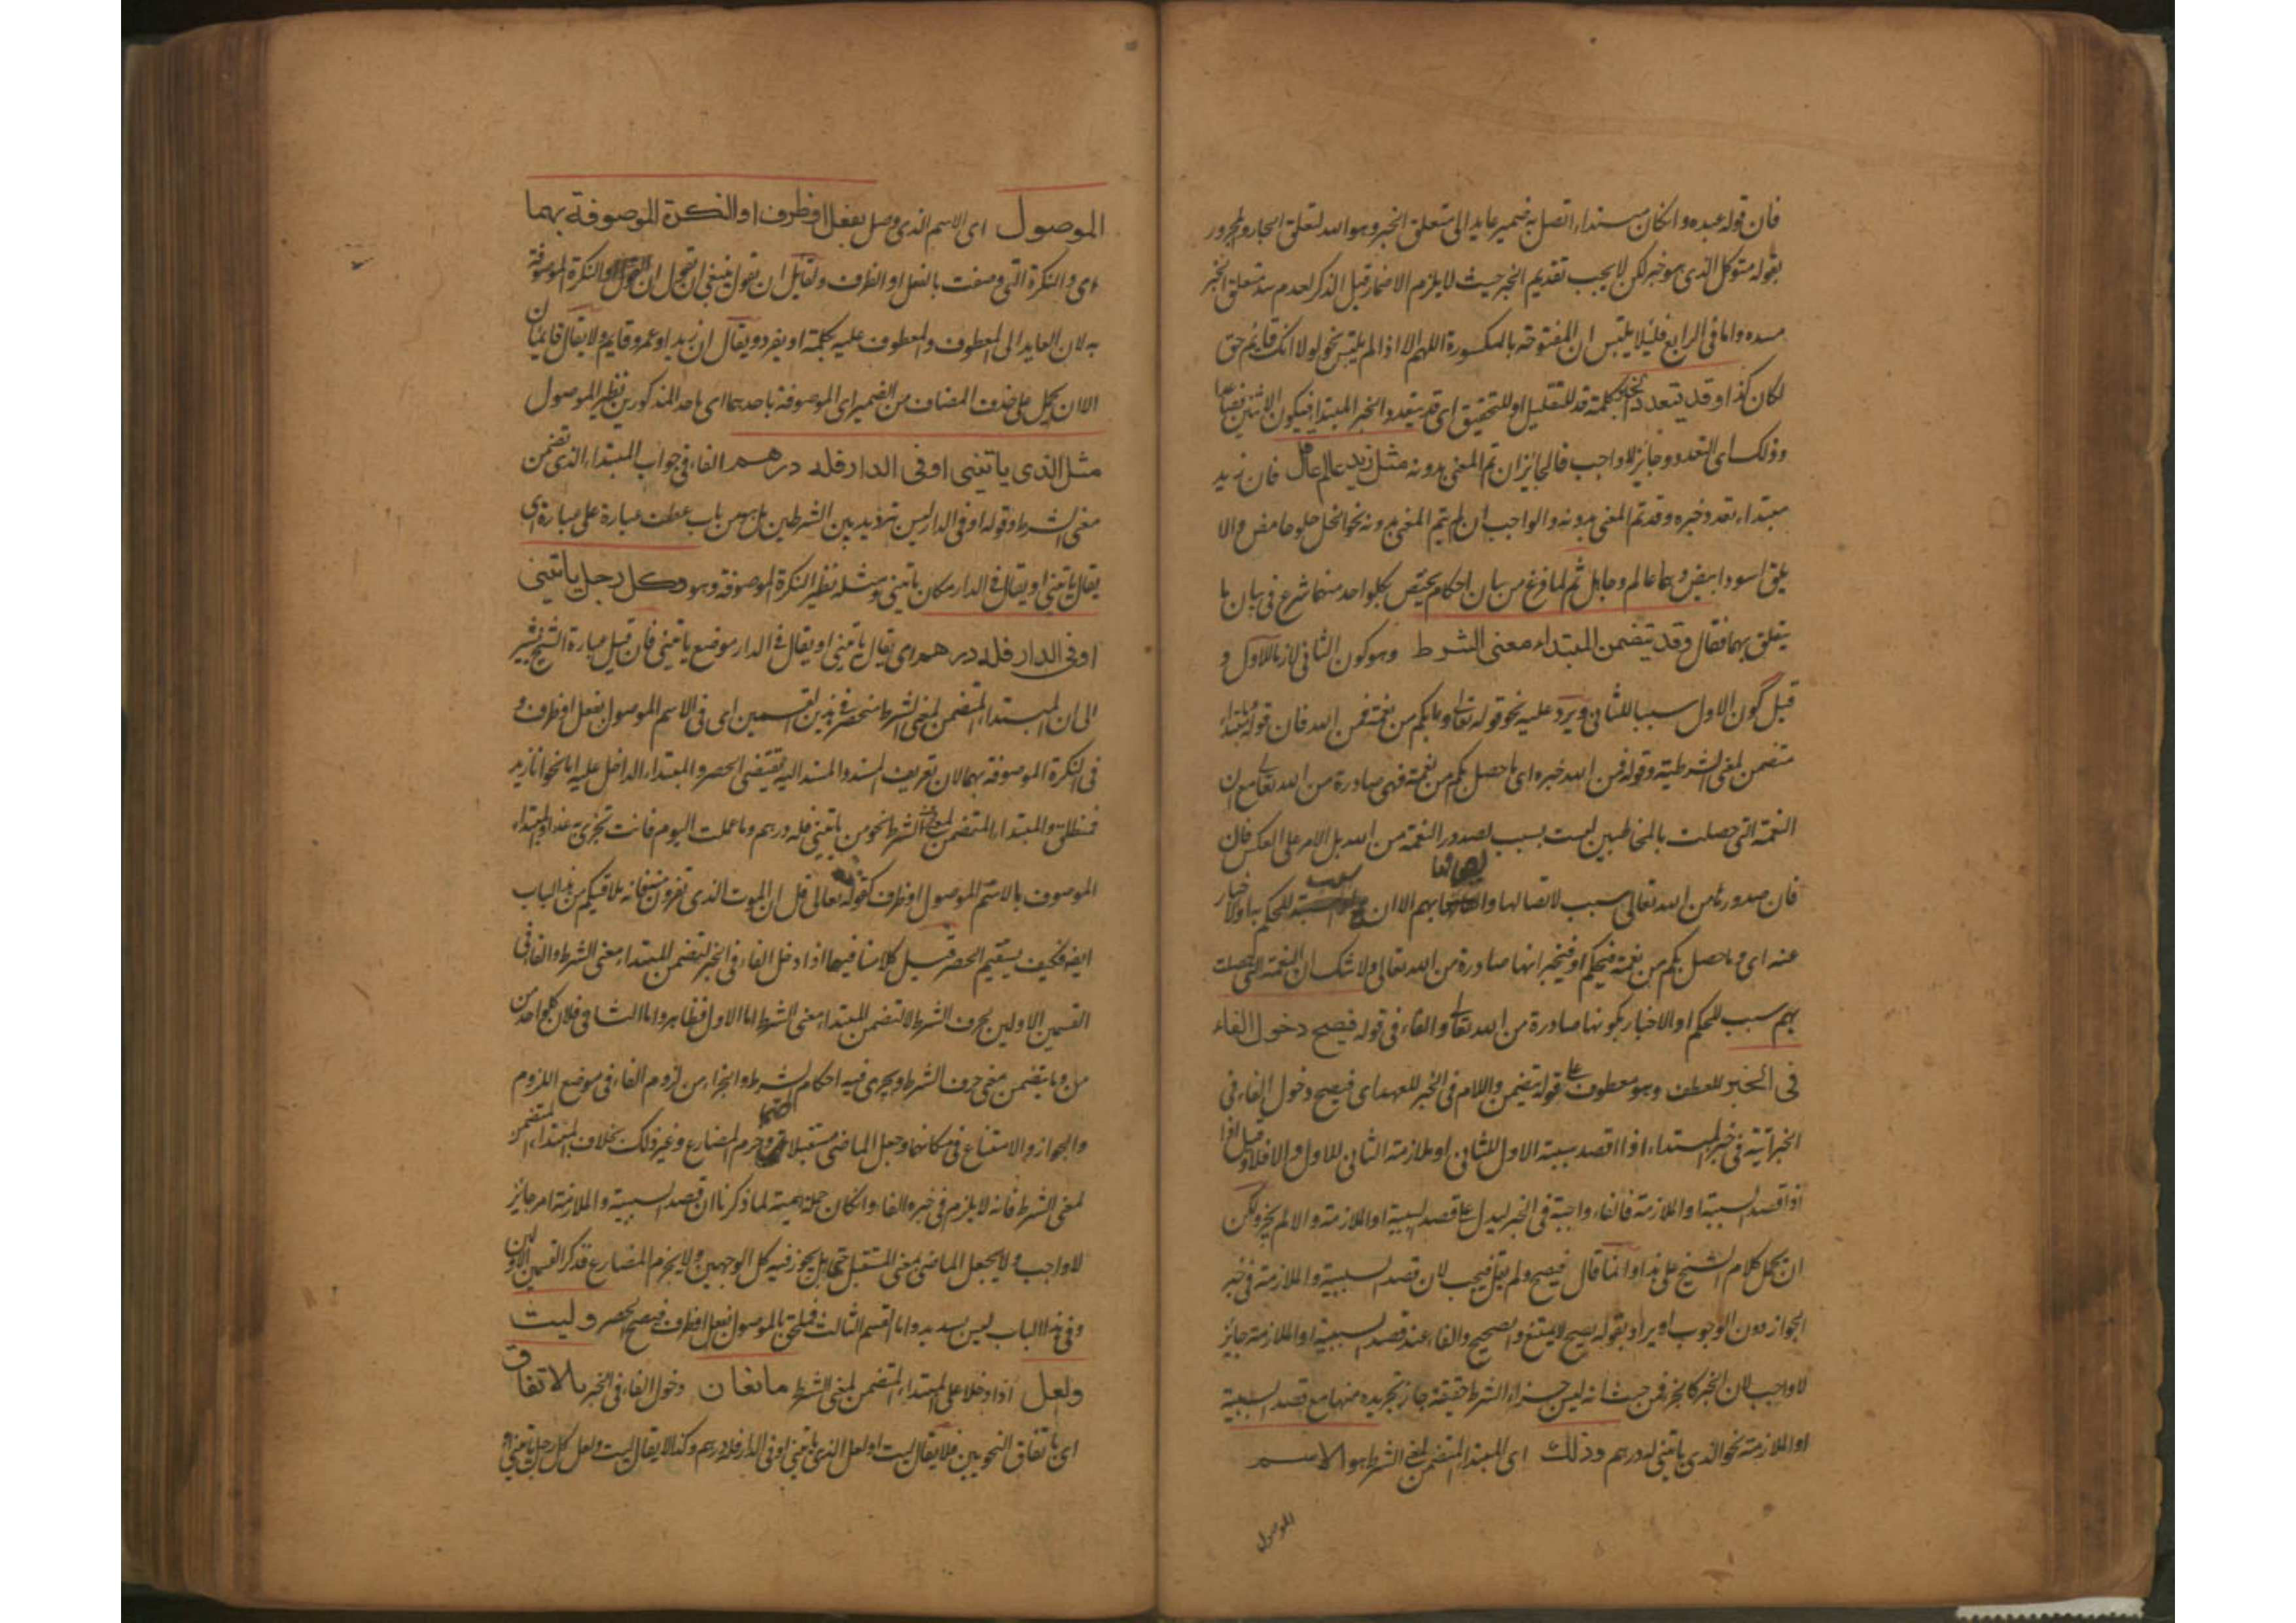 فان قوله عبده وان كان مسندا اتصل به ضمير عايد الى متعلق الخبر وهو الله لتعلق الجار والمجرور
بقوله متوكل الذى هو خبر لكن لا يجب تقديم الخبر حيث لا يلزم الاضمار قبل الذكر لعدم سد متعلق الخبر
مسده واما فى الرابع فلئلا يلتبس ان المفتوحة بالمكسورة اللهم الا اذا لم يلتبس نحو لولا انك قايم حق
لكان كذا وقد يتعدد الخبر كلمة قد للتقليل او للتحقيق اى قد يتعدد الخبر المبتدا فيكون الاثنين فصاعدا
وذلك اى التعدد جايز لا واجب فالجايز ان تم المعنى بدونه مثل زيد عالم عاقل فان زيد
مبتداء تعدد خبره وقد تم المعنى بدونه والواجب ان لم يتم المعنى بدونه نحو الخل حلو حامض والا
بلق اسود ابيض وهما عالم وجاهل ثم لما فرغ من بيان احكام يختص بكل واحد منهما شرع فى بيان ما
يتعلق بهما فقال وقد يتضمن المبتداء معنى الشرط وهو كون الثانى لازما للاول و
قيل كون الاول سببا للثانى ويرد عليه نحو قوله تعالى وما بكم من نعمة فمن الله فان قوله ما مبتداء
متضمن لمعنى الشرطية وقوله فمن الله خبره اى ما حصل بكم من نعمة فهى صادرة من الله تعالى مع ان
النعمة التى حصلت بالمخاطبين ليست بسبب لصدور النعمة من الله بل الامر على العكس فان
فان صدورها من الله تعالى سبب لاتصالها بهم الا ان للحكم بها ولاخبار
عنه اى وما حصل بكم من نعمة فنحكم او فنخبر انها صادرة من الله تعالى ولا شك ان النعمة التى حصلت
بهم سبب للحكم او الاخبار بكونها صادرة من الله تعالى والفاء فى قوله فيصح دخول الفاء
فى الخبر للعطف وهو معطوف على قوله يتضمن واللام فى الخبر للعهد اى فيصح دخول الفاء فى
فى خبر المبتداء اذا قصد سببية الاول للثانى او ملازمة الثانى للاول والا فلا وقيل اذا
اذا قصد السببية او الملازمة فالفاء واجبة فى الخبر ليدل على قصد السببية او الملازمة والا لم يجز ولكن
ان يحمل كلام الشيخ على هذا وانما قال فيصح ولم يقل فيجب لان قصد السببية والملازمة فى خبر
الجواز دون الوجوب او يراد بقوله يصح لا يمتنع والصحيح والفاء عند قصد السببية او الملازمة جايز
لا واجب لان الخبر كالجزء فمن حيث انه ليس جزاء الشرط حقيقة جاز تجريده منها مع قصد السببية
او الملازمة نحو الذى ياتينى له درهم وذلك اى المبتداء المتضمن لمعنى الشرط هو الاسم
الموصول
الموصول اى الاسم الذى وصل بفعل او ظرف او النكرة الموصوفة بهما
اى والنكرة التى وصفت بالفعل او الظرف ولقايل ان يقول ينبغى ان والنكرة الموصوفة
به لان العايد الى المعطوف والمعطوف عليه بكلمة او يفرد ويقال ان زيدا او عمرو قايم ولا يقال قايمان
الا ان يحمل على حذف المضاف من الضمير اى الموصوفة باحدهما اى باحد المذكورين نظير الموصول
مثل الذى ياتينى او فى الدار فله درهم الفاء فى جواب المبتداء الذى تضمن
معنى الشرط وقوله او فى الدار ليس ترديد بين الشرطين بل هو من باب عطف عبارة على عبارة اى
يقال ياتينى او يقال فى الدار مكان ياتينى ومثله نظير النكرة الموصوفة وهو وكل رجل ياتينى
او فى الدار فله درهم اى يقال ياتينى او يقال فى الدار موضع ياتينى فان قيل عبارة الشيخ تشير
الى ان المبتداء المتضمن لمعنى الشرط منحصر فى هذين القسمين اى فى الاسم الموصول بفعل او ظرف و
فى النكرة الموصوفة بهما لان تعريف المسند والمسند اليه يقتضى الحصر والمبتداء الداخل عليه اما نحو اما زيد
فمنطلق والمبتداء المتضمن لمعنى الشرط نحو من ياتينى فله درهم وما عملت اليوم فانت تجزى به غدا والمبتداء
الموصوف بالاسم الموصول او ظرف كقوله تعالى قل ان الموت الذى تفرون منه فانه ملاقيكم من هذا الباب
ايضه فكيف يستقيم الحصر قيل كلامنا فيما اذا دخل الفاء فى الخبر لتضمن المبتداء معنى الشرط والفاء فى
القسمين الاولين لحرف الشرط لا لتضمن المبتداء معنى الشرط اما الاول فظاهر واما الثانى فلان كل واحد من
من وما يتضمن معنى حرف الشرط ويجرى فيه احكام الشرط والجزاء من لزوم الفاء فى موضع اللزوم
والجواز والامتناع فى مكانهما وجعل الماضى مستقبلا وجزم المضارع وغير ذلك بخلاف المبتداء المتضمن
لمعنى الشرط فانه لا يلزم فى خبره الفاء وان كان جملة اسمية لما ذكرنا ان قصد السببية والملازمة امر جايز
لا واجب ولا يجعل الماضى بمعنى المستقبل بل يجوز فيه كل الوجهين ولا يجزم المضارع فذكر القسمين الاولين
وفى هذا الباب ليس بسديد واما القسم الثالث فملحق بالموصول بفعل او ظرف فيصح الحصر وليت
ولعل اذا دخلا على المبتداء المتضمن لمعنى الشرط مانعان دخول الفاء فى الخبر بالاتفاق
اى باتفاق النحويين فلا يقال ليت او لعل الذى ياتينى او فى الدار فله درهم وكذا لا يقال ليت ولعل كل رجل ياتينى او